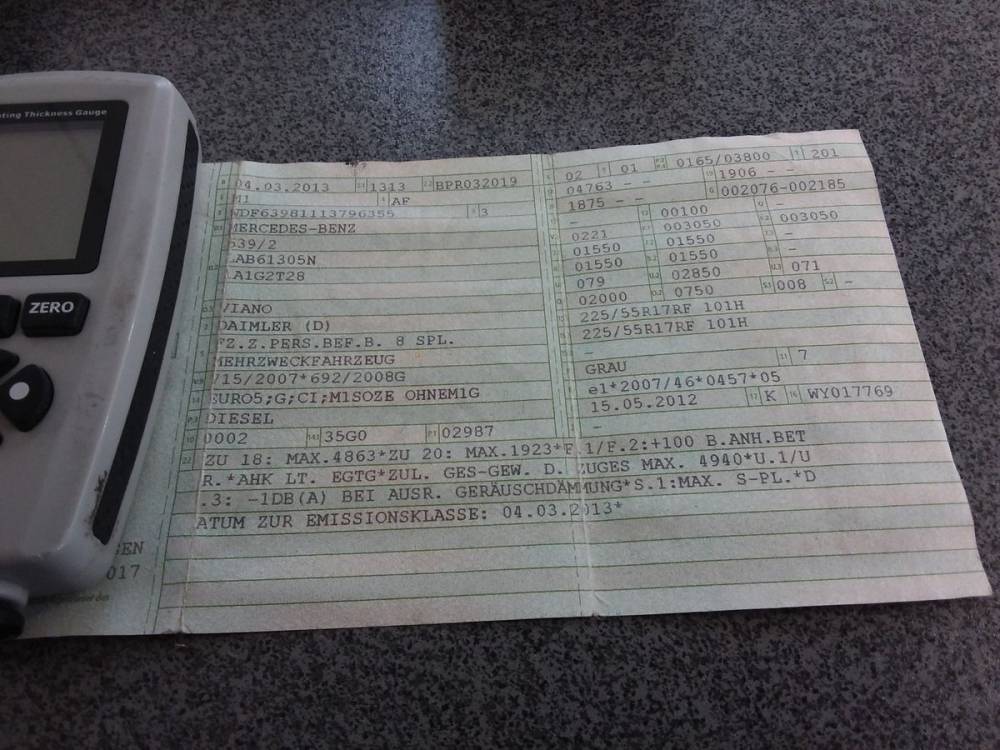 ting Thickness Gauge
ZERO
04.03.2013 1313 BPR032019
M1 AF
WDF63981113796355 3
MERCEDES-BENZ
639/2
AB61305N
A1G2T28
VIANO
DAIMLER (D)
FZ.Z.PERS.BEF.B. 8 SPL.
MEHRZWECKFAHRZEUG
715/2007*692/2008G
EURO5;G;CI;M1SOZE OHNEM1G
DIESEL
0002 35G0 02987
02 01 0165/03800 201
04763 - - 1906 - -
1875 - - 002076-002185
- 00100 -
0221 003050 003050
01550 01550 -
01550 01550 -
079 02850 071
02000 0750 008 -
225/55R17RF 101H
225/55R17RF 101H
-
GRAU 7
e1*2007/46*0457*05
15.05.2012 K WY017769
-
ZU 18: MAX.4863*ZU 20: MAX.1923*F.1/F.2:+100 B.ANH.BET
R.*AHK LT. EGTG*ZUL. GES-GEW. D. ZUGES MAX. 4940*U.1/U
.3: -1DB(A) BEI AUSR. GERÄUSCHDÄMMUNG*S.1:MAX. S-PL.*D
ATUM ZUR EMISSIONSKLASSE: 04.03.2013*
EN
017